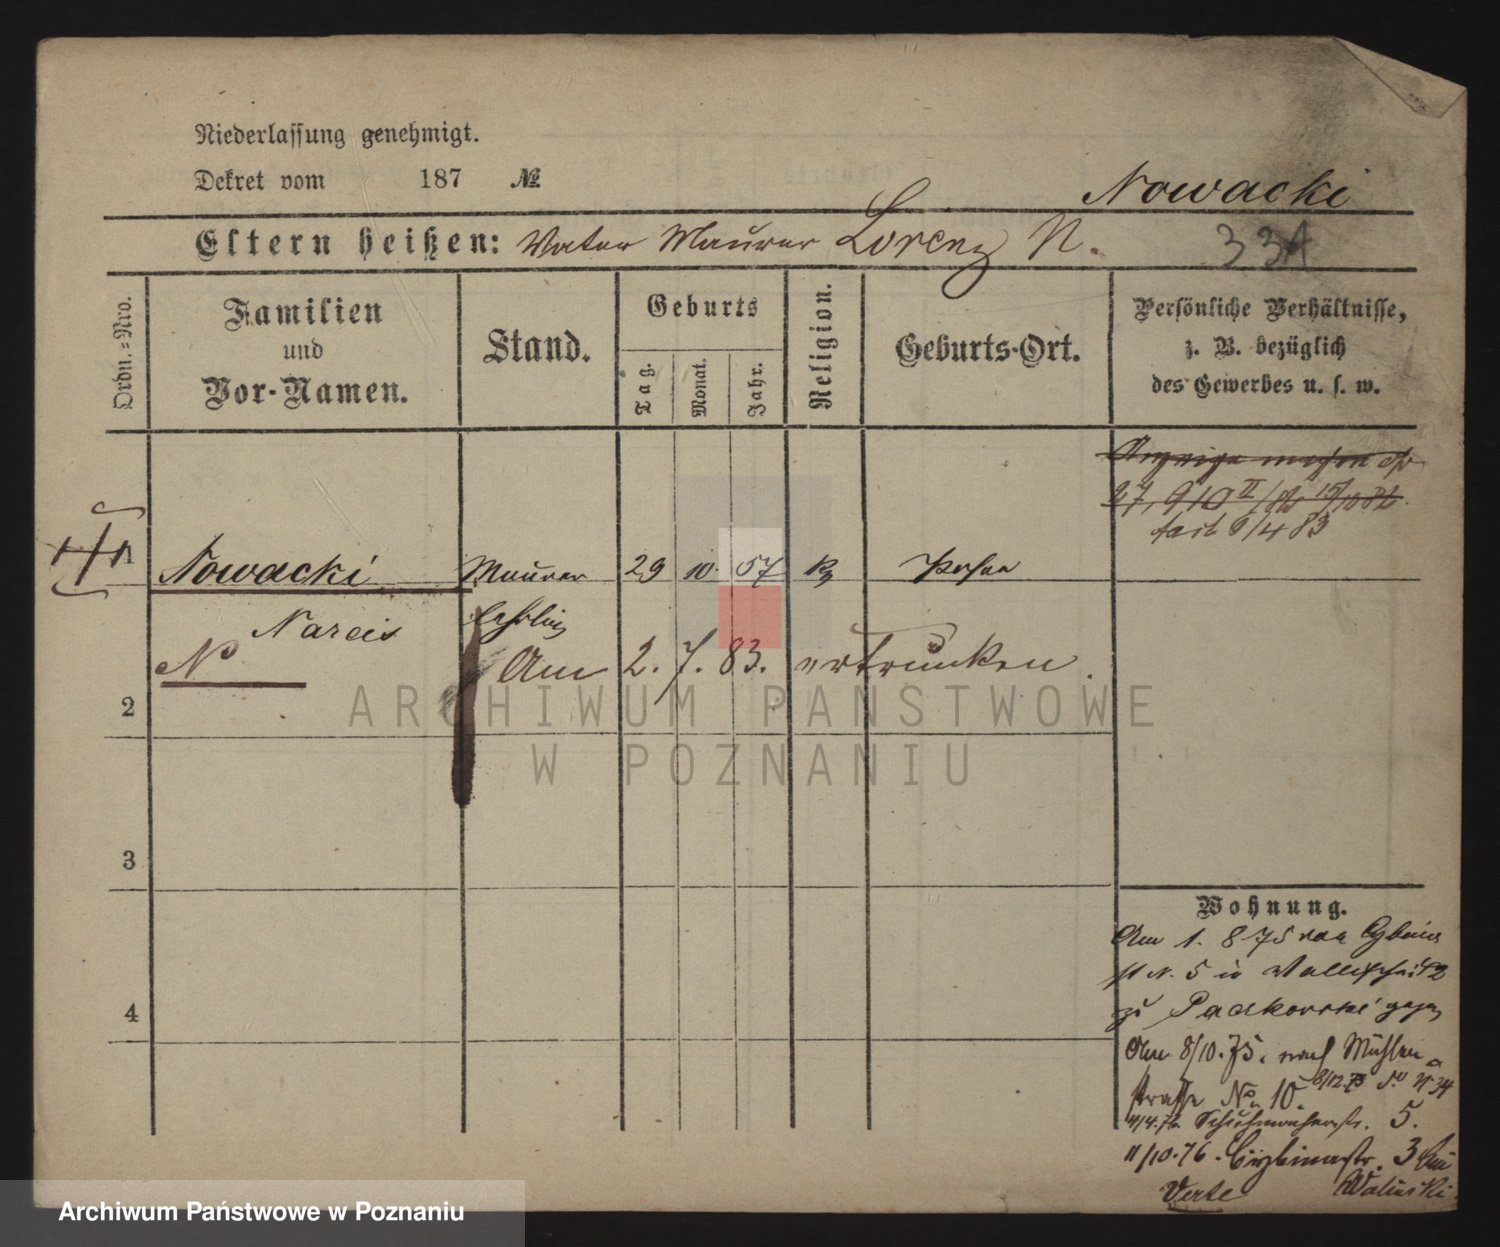 Niederlassung genehmigt.
Dekret vom 187 №
Nowacki
Eltern heißen: Vater Maurer Lorenz N.
334
Ordn.-Nro.
Familien
und
Vor-Namen.
Stand.
Geburts
Tag.
Monat.
Jahr.
Religion.
Geburts-Ort.
Persönliche Verhältnisse,
z. B. bezüglich
des Gewerbes u. s. w.
27,910 II 15/10 82.
6/4 83
1
Nowacki Maurer 29 10. 57 Posen
Narcis Lehrling
N Am 2. 7. 83. ertrunken.
2
3
4
Wohnung.
Am 1. 8 75
N. 5 in Wallischei
zu
Am 8/10. 75. nach Mühlen
straße No 10 34
Schuhmacherstr. 5.
11/10.76. 3 bei
Verte Walinski
ARCHIWUM PAŃSTWOWE
W POZNANIU
Archiwum Państwowe w Poznaniu